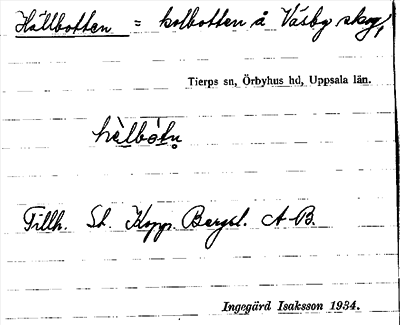 Hällbotten = kolbotten å Väsby skog,
Tierps sn, Örbyhus hd, Uppsala län.
hèlbótn̥
Tillh. St. Kopp. Bergsl. A-B.
Ingegärd Isaksson 1934.